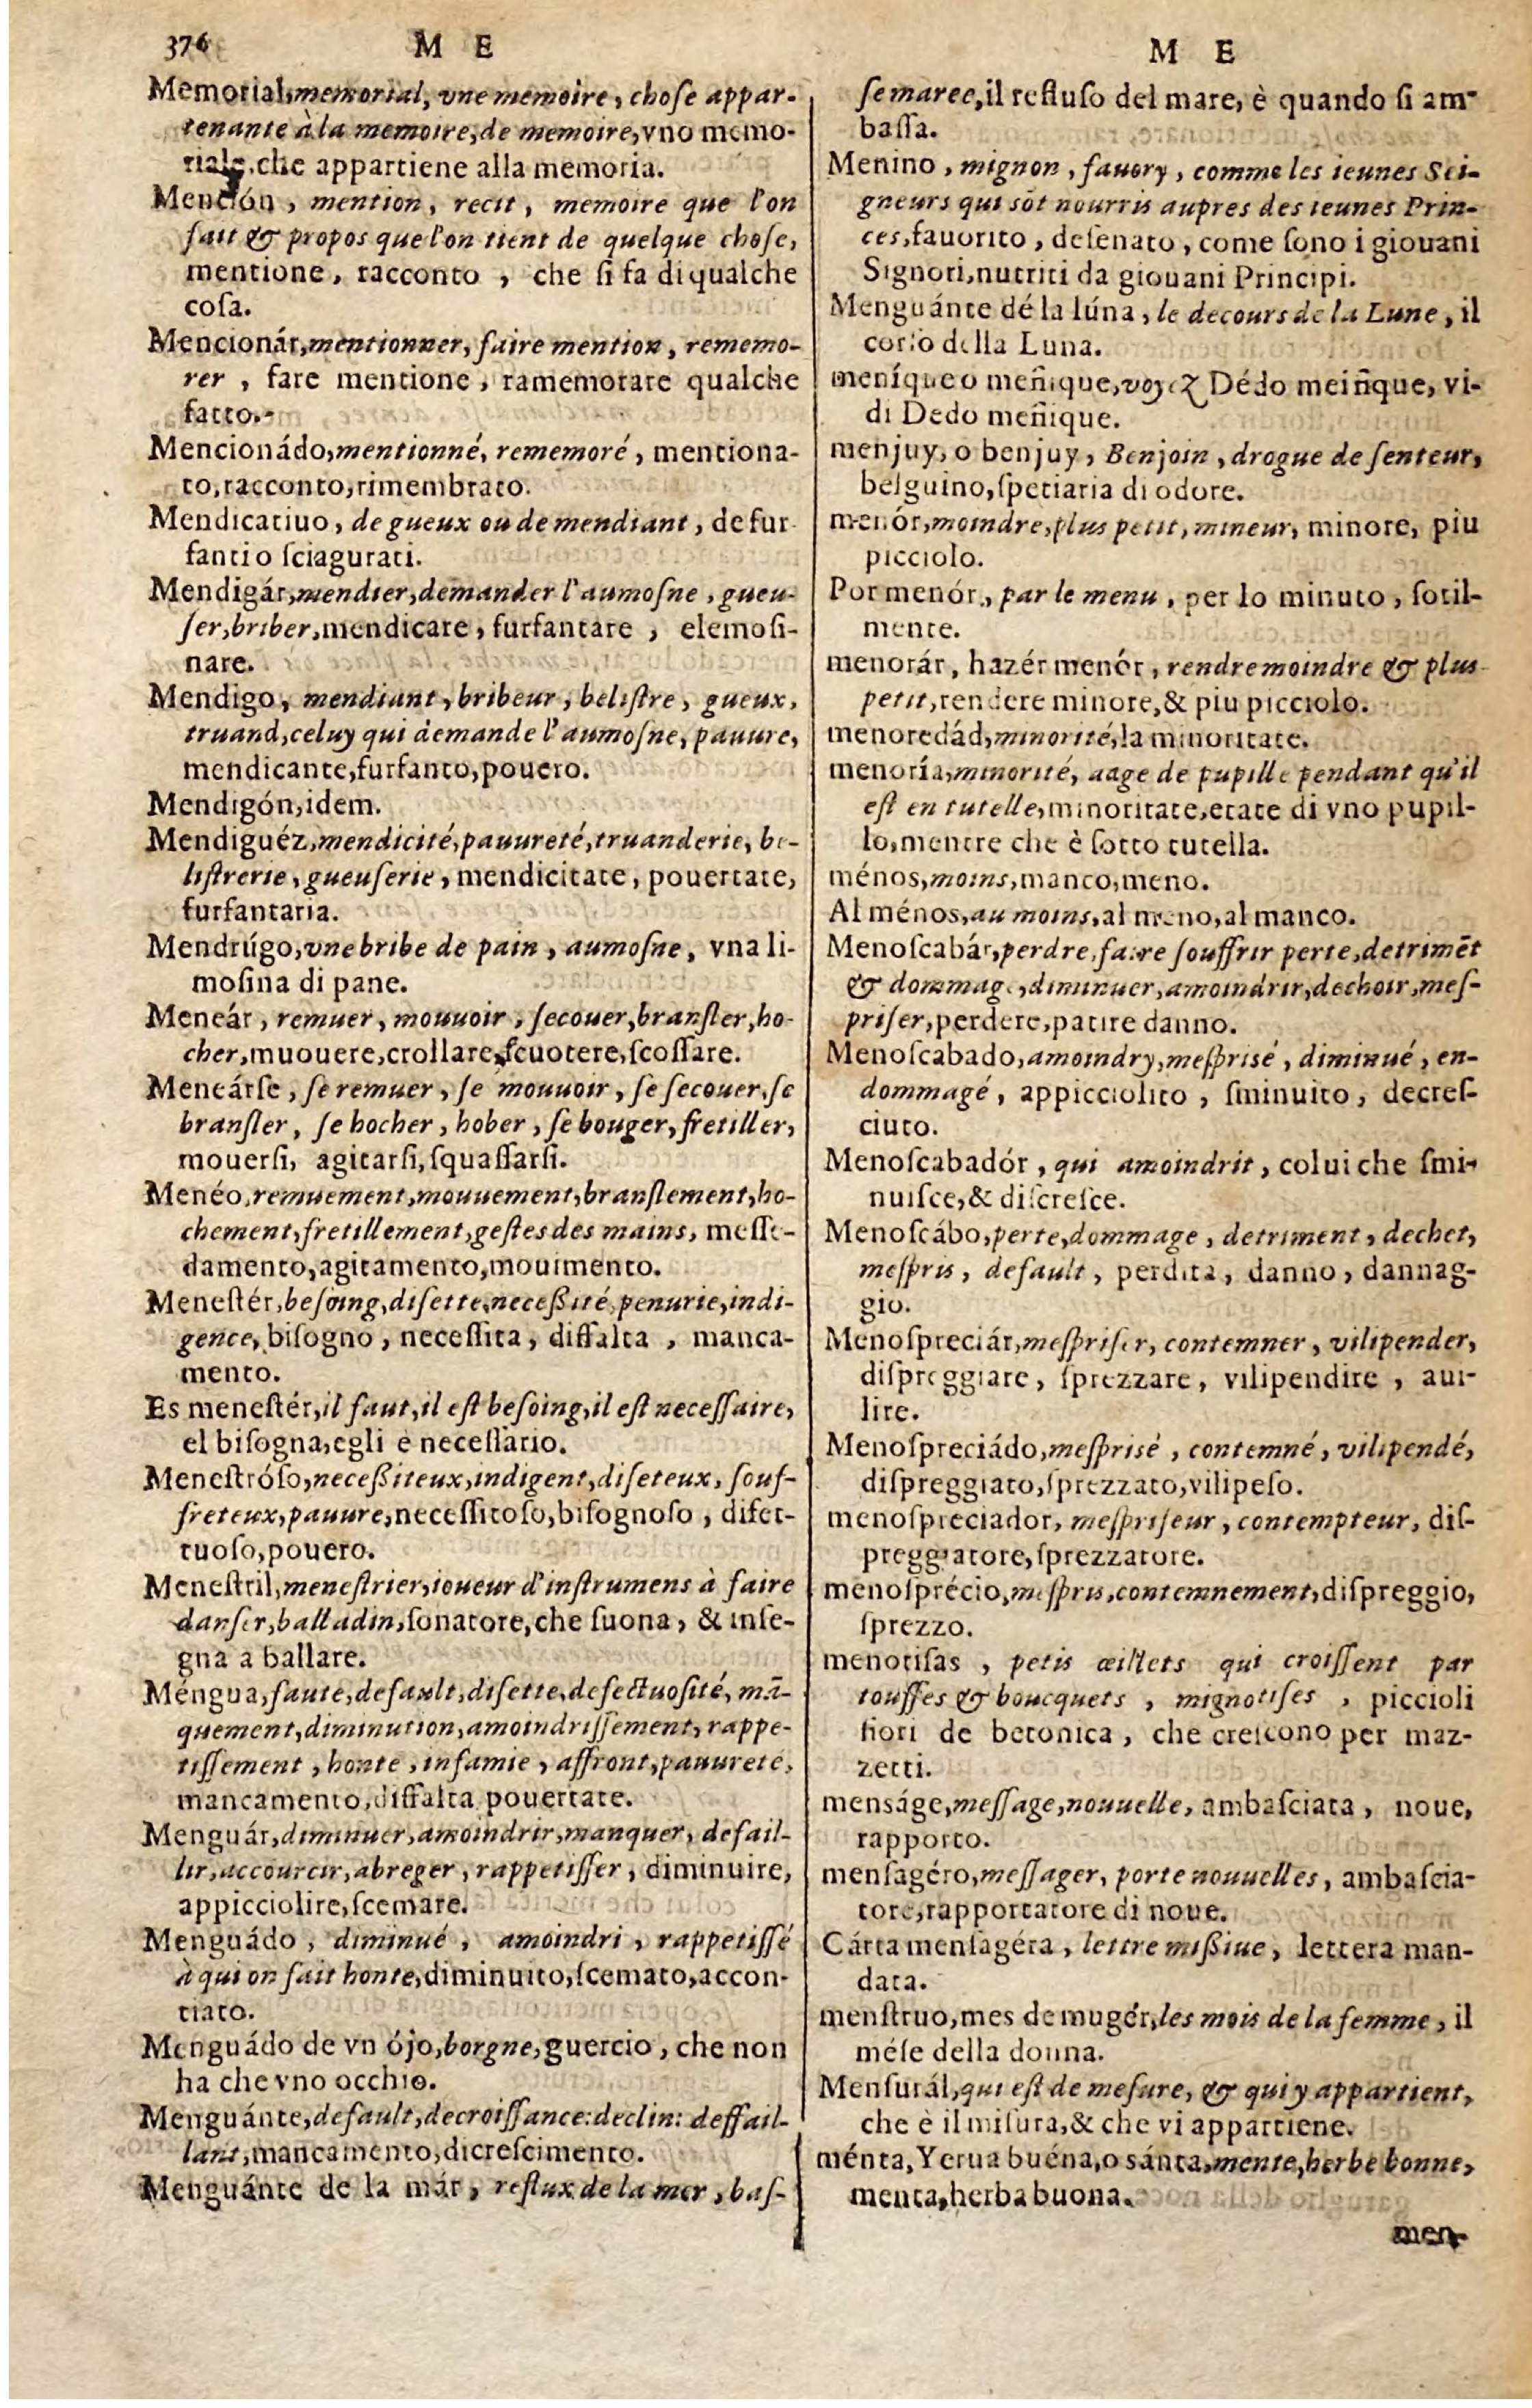 376 M E
Memorial, memorial, vne memoire, chose appar-
tenante à la memoire, de memoire, vno memo-
riale, che appartiene alla memoria.
Mención, mention, recit, memoire que l'on
fait & propos que l'on tient de quelque chose,
mentione, racconto, che si fa di qualche
cosa.
Mencionár, mentionner, faire mention, rememo-
rer, fare mentione, ramemorare qualche
fatto.
Mencionádo, mentionné, rememoré, mentiona-
to, racconto, rimembrato.
Mendicatiuo, de gueux ou de mendiant, de fur
fanti o sciagurati.
Mendigár, mendier, demander l'aumosne, gueu-
ser, briber, mendicare, furfantare, elemosi-
nare.
Mendigo, mendiant, bribeur, belistre, gueux,
truand, celuy qui demande l'aumosne, pauure,
mendicante, furfanto, pouero.
Mendigón, idem.
Mendiguéz, mendicité, pauureté, truanderie, be-
listrerie, gueuserie, mendicitate, pouertate,
furfantaria.
Mendrúgo, vne bribe de pain, aumosne, vna li-
mosina di pane.
Meneár, remuer, mouuoir, secouer, bransler, ho-
cher, muouere, crollare, scuotere, scossare.
Meneárse, se remuer, se mouuoir, se secouer, se
bransler, se hocher, hober, se bouger, fretiller,
moversi, agitarsi, squassarsi.
Menéo, remuement, mouuement, branslement, ho-
chement, fretillement, gestes des mains, messe-
damento, agitamento, mouimento.
Menestér, besoing, disette, necessité, penurie, indi-
gence, bisogno, necessita, diffalta, manca-
mento.
Es menestér, il faut, il est besoing, il est necessaire,
el bisogna, egli è necessario.
Menestróso, necessiteux, indigent, diseteux, souf-
freteux, pauure, necessitoso, bisognoso, difet-
tuoso, pouero.
Menestril, menestrier, ioueur d'instrumens à faire
danser, balladin, sonatore, che suona, & inse-
gna a ballare.
Méngua, faute, default, disette, defectuosité, mā-
quement, diminution, amoindrissement, rappe-
tissement, honte, infamie, affront, pauureté,
mancamento, diffalta pouertate.
Menguár, diminuer, amoindrir, manquer, defail-
lir, accourcir, abreger, rappetisser, diminuire,
appicciolire, scemare.
Menguádo, diminué, amoindri, rappetissé
à qui on fait honte, diminuito, scemato, accon-
tiato.
Menguádo de vn ójo, borgne, guercio, che non
ha che vno occhio.
Menguánte, default, decroissance: declin: deffail-
lant, mancamento, dicrescimento.
Menguánte de la már, reflux de la mer, bas-
M E
se maree, il reflusо del mare, è quando si am-
bassa.
Menino, mignon, fauory, comme les ieunes Sei-
gneurs qui sōt nourris aupres des ieunes Prin-
ces, fauorito, desenato, come sono i giouani
Signori, nutriti da giouani Principi.
Menguánte dé la lúna, le decours de la Lune, il
corso della Luna.
meníque o meñique, voyez Dédo meiñque, vi-
di Dedo meñique.
menjuy, o benjuy, Benjoin, drogue de senteur,
belguino, spetiaria di odore.
menór, moindre, plus petit, mineur, minore, piu
picciolo.
Por menór, par le menu, per lo minuto, sotil-
mente.
menorár, hazér menór, rendre moindre & plus
petit, rendere minore, & piu picciolo.
menoredád, minorité, la minoritate.
menoría, minorité, aage de pupille pendant qu'il
est en tutelle, minoritate, etate di vno pupil-
lo, mentre che è sotto tutella.
ménos, moins, manco, meno.
Al ménos, au moins, al meno, al manco.
Menoscabár, perdre, faire souffrir perte, detrimēt
& dommage, diminuer, amoindrir, dechoir, mes-
priser, perdere, patire danno.
Menoscabado, amoindry, mesprisé, diminué, en-
dommagé, appicciolito, sminuito, decres-
ciuto.
Menoscabadór, qui amoindrit, colui che smi-
nuisce, & discresce.
Menoscábo, perte, dommage, detriment, dechet,
mespris, default, perdita, danno, dannag-
gio.
Menospreciár, mespriser, contemner, vilipender,
dispreggiare, sprezzare, vilipendire, aui-
lire.
Menospreciádo, mesprisé, contemné, vilipendé,
dispreggiato, sprezzato, vilipeso.
menospreciador, mespriseur, contempteur, dis-
preggiatore, sprezzatore.
menosprécio, mespris, contemnement, dispreggio,
sprezzo.
menotisas, petis œillets qui croissent par
touffes & boucquets, mignotises, piccioli
fiori de betonica, che crescono per maz-
zetti.
menságe, message, nouuelle, ambasciata, noue,
rapporto.
mensagéro, messager, porte nouuelles, ambascia-
tore, rapportatore di noue.
Cárta mensagéra, lettre missiue, lettera man-
data.
menstruo, mes de mugér, les mois de la femme, il
mése della donna.
Mensurál, qui est de mesure, & qui y appartient,
che è il misura, & che vi appartiene.
ménta, Yerua buéna, o sánta, mente, herbe bonne,
menta, herba buona.
men-